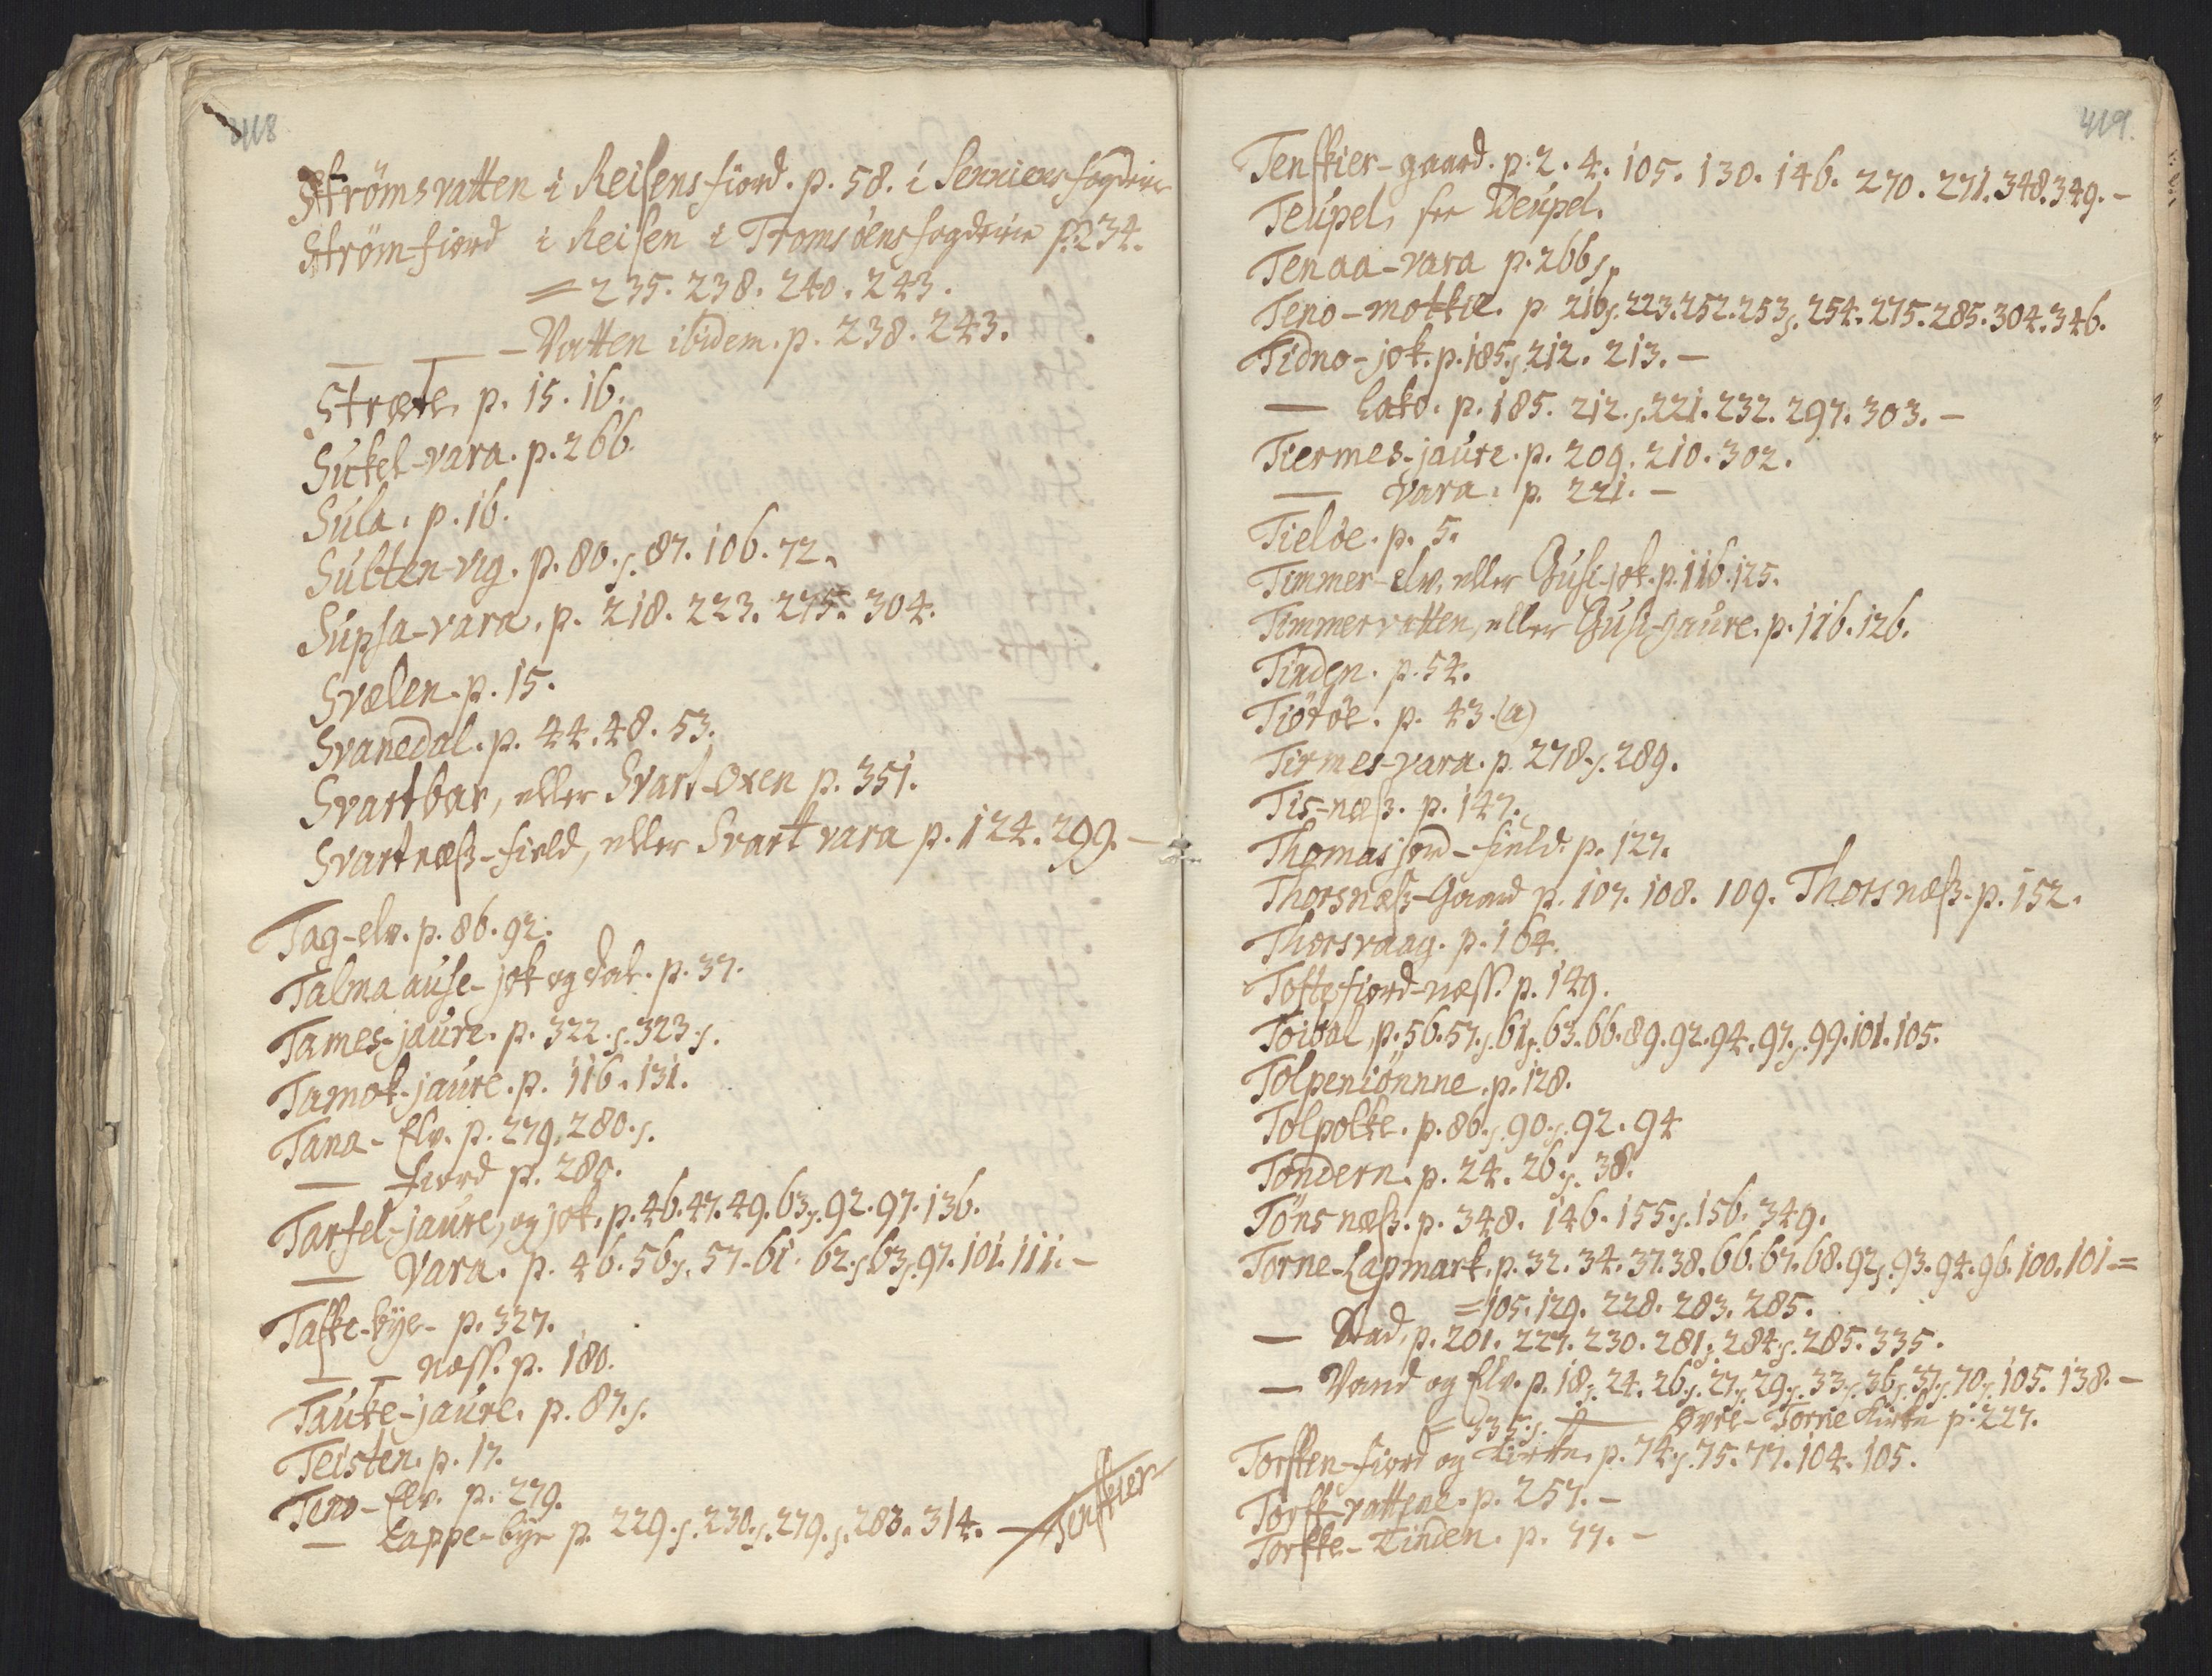 418
Strömsvatten i Reisensfiord. p. 58. i Senniens fogderie
Strömfiord i Reisen i Tromsöens fogderie p. 234.
= 235. 238. 240. 243.
— — - Vatten ibidem. p. 238. 243.
Stræte p. 15. 16.
Suckel-vara. p. 266.
Sula. p. 16.
Sulten-vig. p. 80.s. 87. 106. 72.
Supsa-vara. p. 218. 223. 275. 304.
Svælen. p. 15.
Svanedal. p. 44. 48. 53.
Svartbar, eller Svart-Oxen p. 351.
Svartnæss-field, eller Svart vara p. 124. 299. -
Tag-elv. p. 86. 92.
Talma ause-jok og dal. p. 37.
Tames-jaure. p. 322.s. 323.s.
Tamok-jaure. p. 116. 131.
Tana-Elv. p. 279. 280.s.
— fiord p. 280.
Tarfel-jaure, og jok. p. 46. 47. 49. 63.s. 92. 97. 136.
— Vara. p. 46. 56.s. 57. 61. 62.s. 63.s. 97. 101. 111. -
Taske-bye- p. 327.
— — næss. p. 180.
Tauke-jaure. p. 87.s.
Teisten. p. 17.
Teno-Elv. p. 279.
— Lappe-bye p. 229.s. 230.s. 279.s. 283. 314. — Tenskier
419.
Tenskier-gaard. p. 2. 4. 105. 130. 146. 270. 271. 348. 349. -
Teupel, see Deupel.
Tenaa-vara p. 266.s.
Teno-motkie. p 216.s. 223. 252. 253.s. 254. 275. 285. 304. 346.
Tidno-jok. p. 185.s. 212. 213. -
— Lako. p. 185. 212.s. 221. 232. 297. 303. -
Tiermes-jaure. p. 209. 210. 302.
— Vara. p. 221. -
Tieldøe. p. 5.
Timmer-elv. eller Gusi-jok. p. 116. 125.
Timmervatten, eller Gusi-jaure. p. 116. 126.
Tinden. p. 54.
Tiötöe. p. 43. (a)
Tirmes-vara. p. 278.s. 289.
Tis-næss. p. 147.
Thomasjord-field. p. 127.
Thorsnæss-Gaard p. 107. 108. 109. Thorsnæss. p. 152.
Thorsvaag. p. 164.
Toftefiord-næss. p. 149.
Toibal, p. 56. 57.s. 61.s. 63. 66. 89. 92. 94. 97.s. 99. 101. 105.
Tolpeniönnne. p. 128.
Tolpolke. p. 86.s. 90.s. 92. 94
Tondern. p. 24. 26.s. 38.
Tönsnæss. p. 348. 146. 155.s. 156. 349.
Torne-Lapmark. p. 32. 34. 37. 38. 66. 67. 68. 92.s. 93. 94. 96. 100. 101 =
= 105. 129. 228. 283. 285.
— Stad, p. 201. 227. 230. 281.s. 284.s. 285. 335.
— Vand og Elv. p. 18.s. 24. 26.s. 27.s. 29.s. 33.s. 36.s. 37.s. 70.s. 105. 138. -
= 335.s. — Øvre-Torne Kirke p. 227.
Torsken-fiord og Kirke. p. 74.s. 75. 77. 104. 105.
Torsk-vattene. p. 257. -
Torske-Tinden. p. 77. -